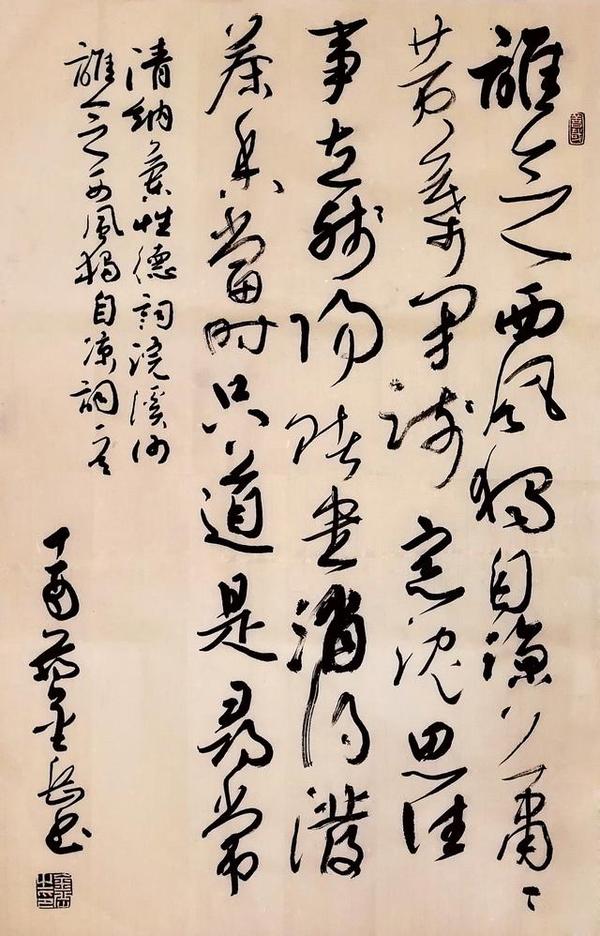 誰念西風獨自涼蕭〻
黃葉閉疏窗沈思往
事立殘陽賭書消得潑
茶香當時只道是尋常
清納蘭性德詞浣溪沙
誰念西風獨自涼詞
丁酉金岳书